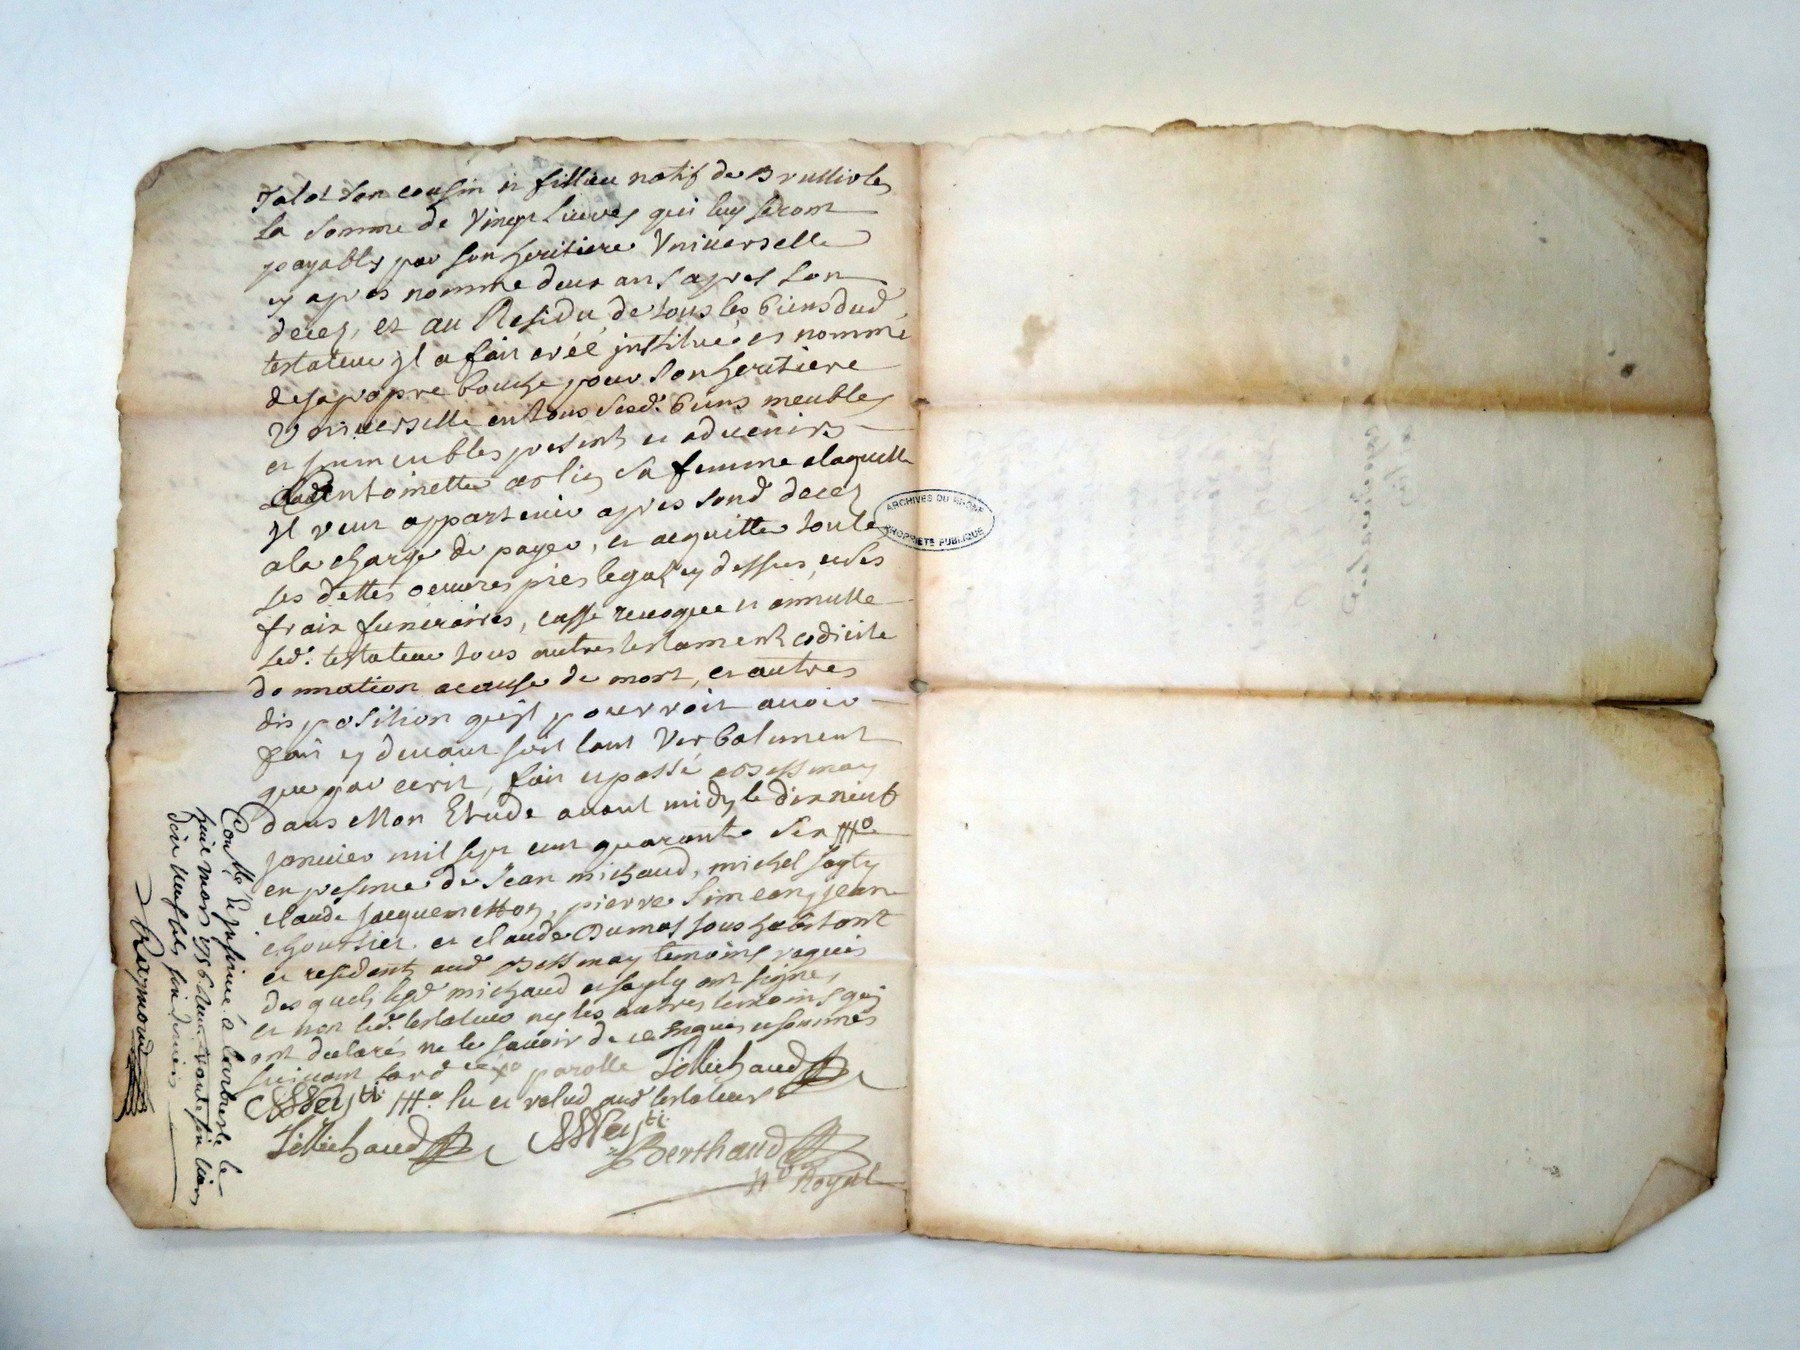 Jalot son cousin et fillieu natif de Brullioles
la somme de Vingt Livres qui luy seront
payables par son heritiere Universelle
cy apres nommé deux ans apres son
deces, et au Residu de tous les biens dud
testateur jl a fait créé jnstitué et nommé
de sa propre bouche pour son heritiere
Universelle en tous sesd. biens meubles
et jmmeubles present et advenirs
Antoinette sa femme alaquelle
jl veut appartenir apres sond deces
ala charge de payer, et acquitter toutes
ses dettes oeuvres pies legat cy dessus, et ses
frais funeraires, casse revoque et annulle
led. testateur tous autres testament codicile
donnation acause de mort, et autres
disposition qu'jl pourroit avoir
fait cy devant soit tant Verbalement
que par ecrit, fait et passé a Bessenay
dans Mon Etude avant midy le dix neuf
janvier mil sept cent quarante six ///o
en presence de Jean michaud, michel
claude jacquemetton, pierre simeon, jean
et claude Dumas tous habitant
et residents aud Bessenay temoins requis
des quels led michaud et ont signes
et non led. testateur ny les autres temoins qui
ont declarés ne le sçavoir de ce enquis et sommés
suivant lord parolle JMichaud
///o lu et aud testateur
JMichaud
Berthaud
No Royal
Conllé et jnsinué à Larbresle le
huit mars 1756
Raymond
ARCHIVES DU RHONE
PROPRIETE PUBLIQUE